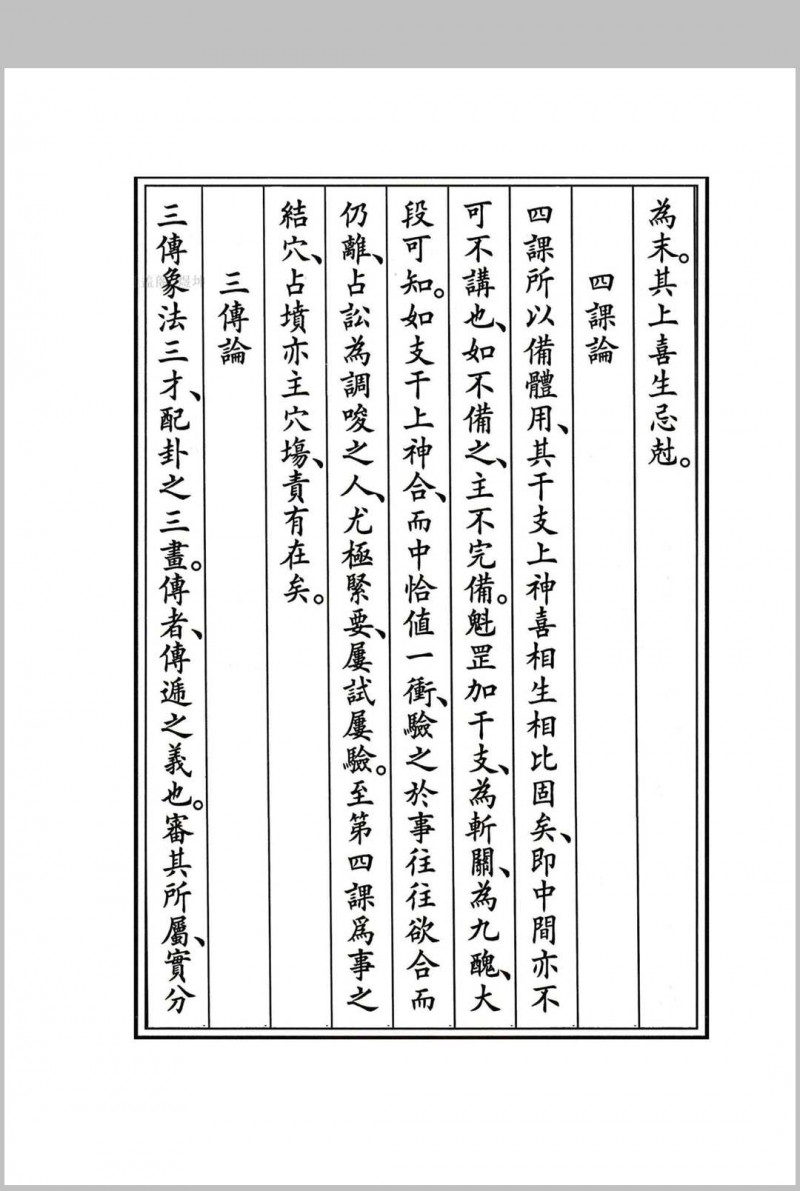 為末。其上喜生忌尅。
四課論
四課所以備體用、其干支上神喜相生相比固矣、即中間亦不
可不講也、如不備之、主不完備。魁罡加干支、為斬關、為九醜、大
段可知。如支干上神合、而中恰值一衝、驗之於事往往欲合而
仍離、占訟為調唆之人、尤極緊要、屢試屢驗。至第四課爲事之
結穴、占墳亦主穴塲、責有在矣。
三傳論
三傳象法三才、配卦之三畫。傳者、傳遞之義也。審其所屬、實分